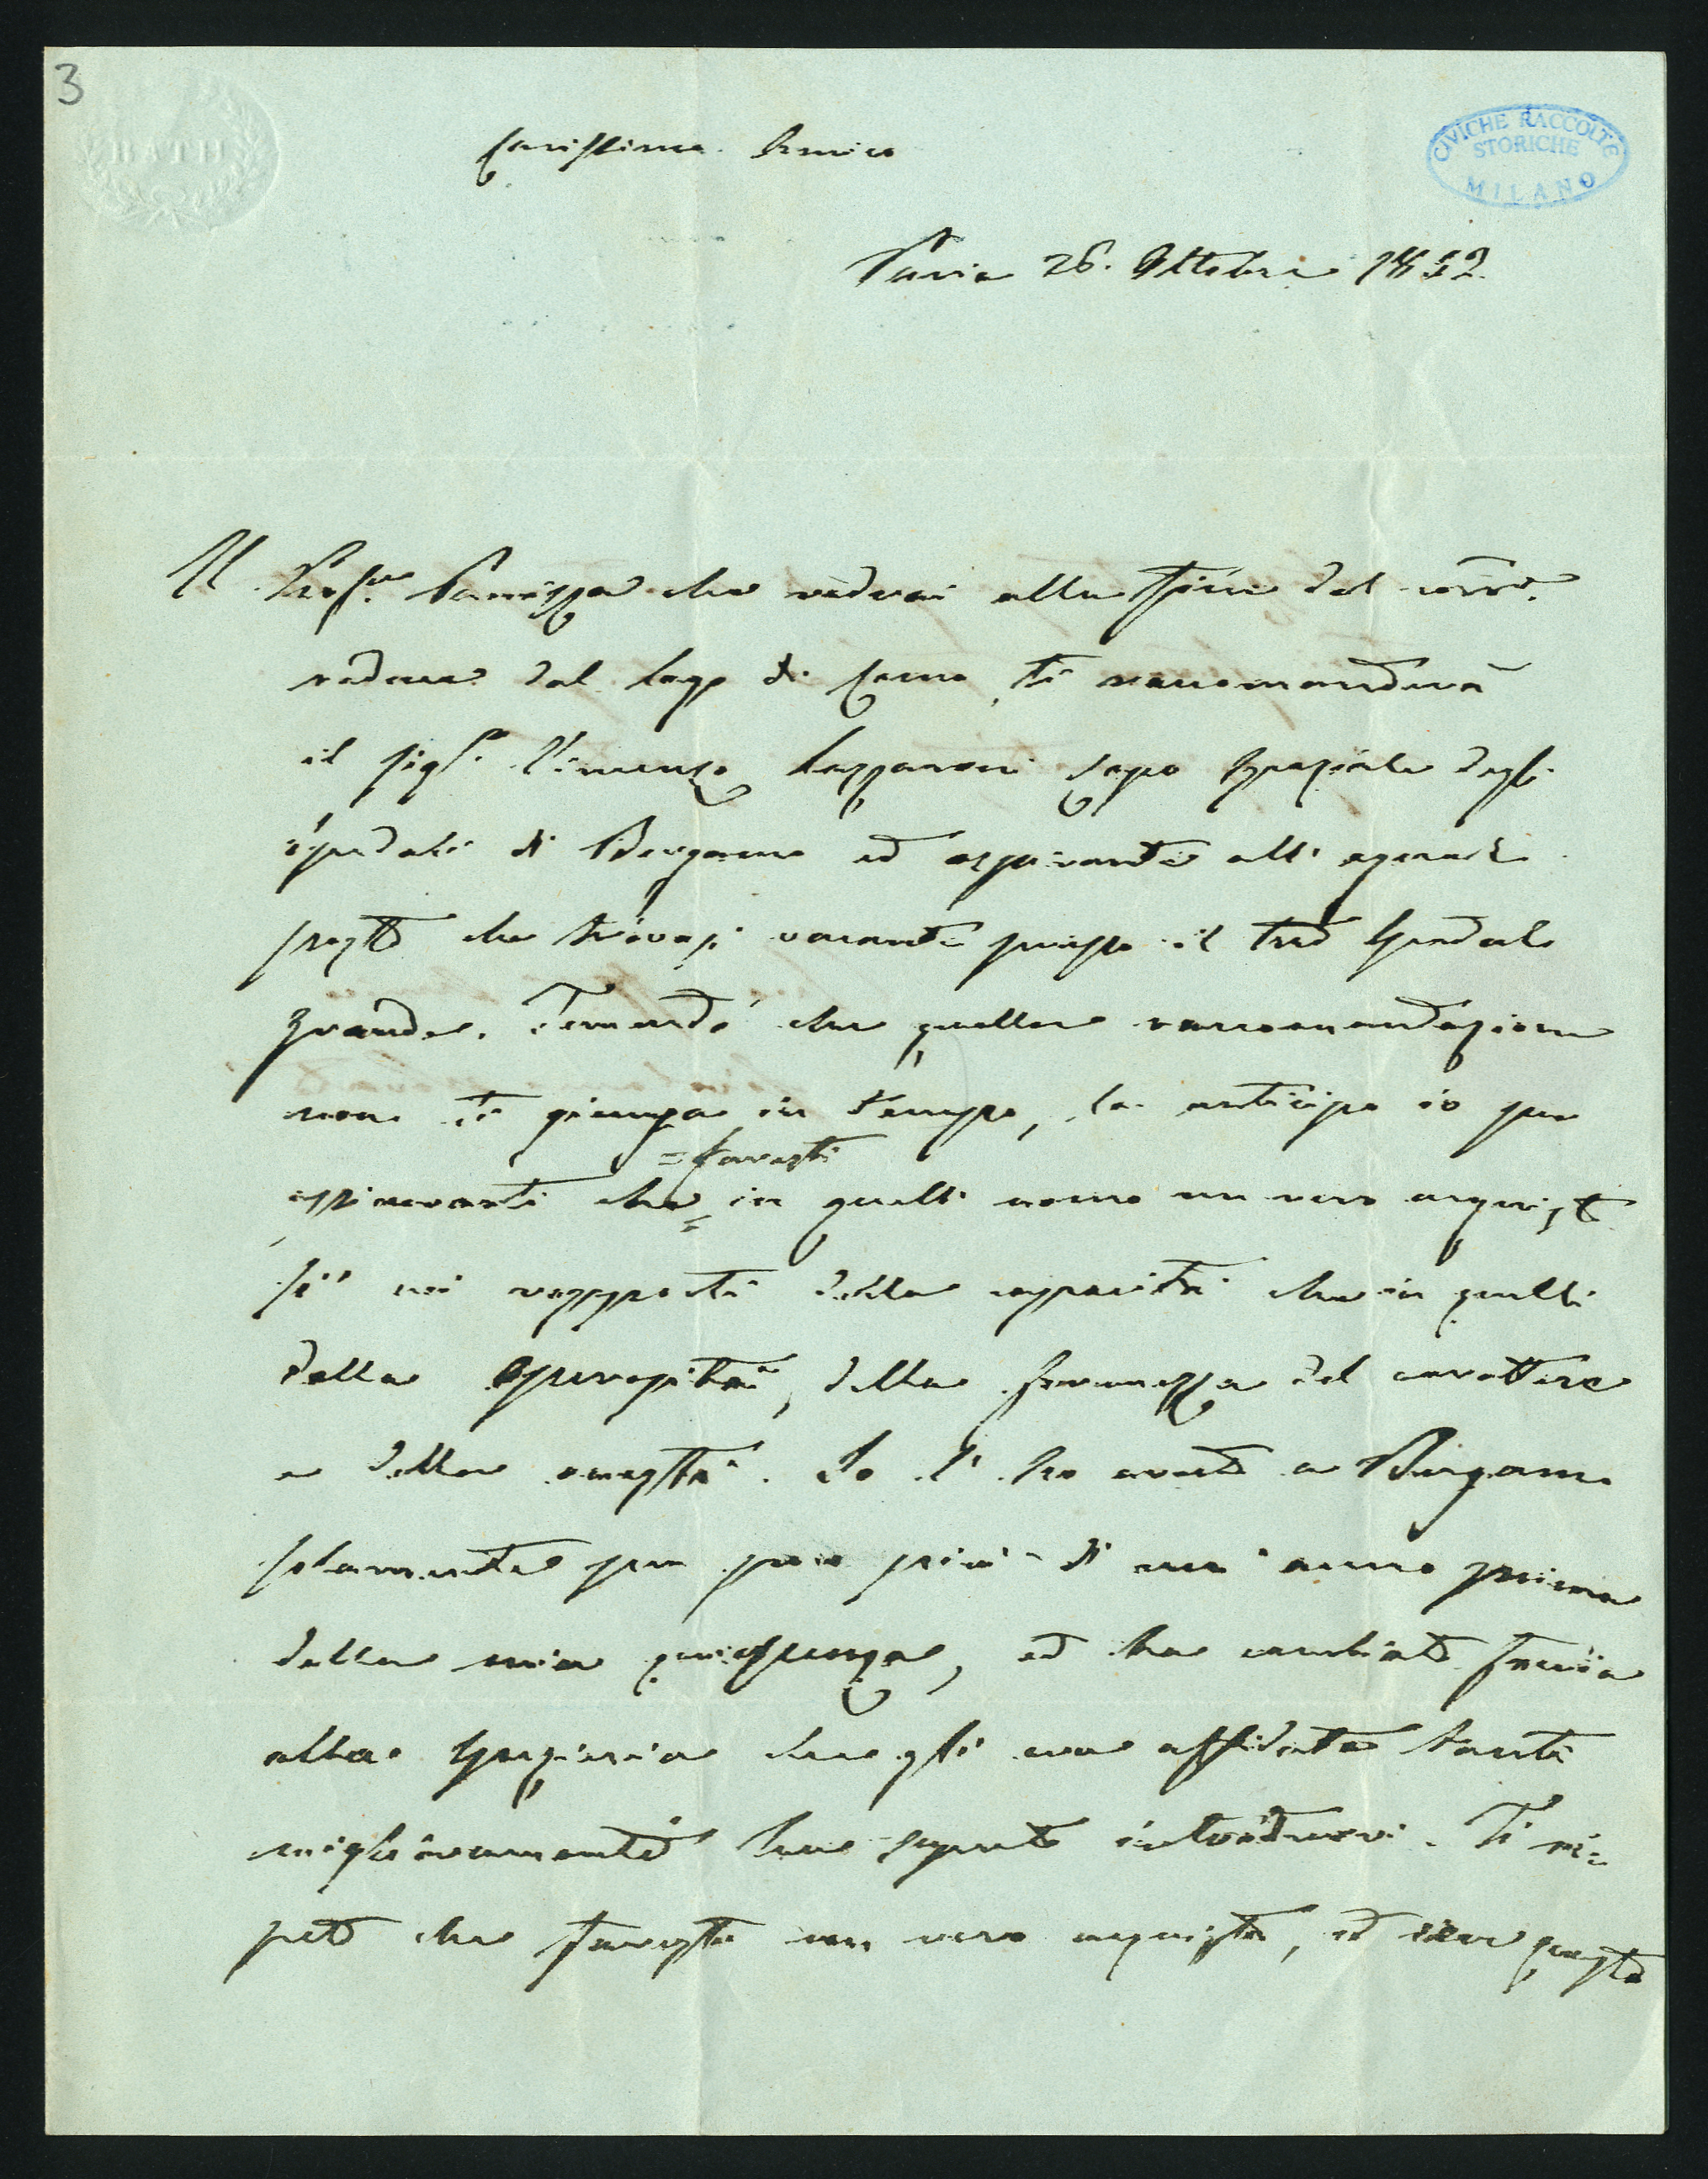 3
BATH
CIVICHE RACCOLTE
STORICHE
MILANO
Carissimo Amico
Pavia 26. Ottobre 1852.
Il Prof.re Panizza che vedrai alla fine del corr.te
reduce dal lago di Como, ti raccomanderà
il sig.r Vincenzo capo speziale degli
spedali di Bergamo ed aspirante all'egual
posto che trovasi vacante presso il tuo Spedale
grande. Temendo che quella raccomandazione
non ti giunga in tempo, la anticipo io per
= faresti
assicurarti che = in quell'uomo un vero acquisto
sì nei rapporti della capacità che in quelli
della operosità, della fermezza del carattere
e della onestà. Io l'ho avuto a Bergamo
solamente per poco più di un anno prima
della mia quiescenza, ed ha cambiato faccia
alla spezieria che gli era affidata tanti
miglioramenti ha saputo introdurvi. Ti ri=
peto che faresti un vero acquisto, ed questo